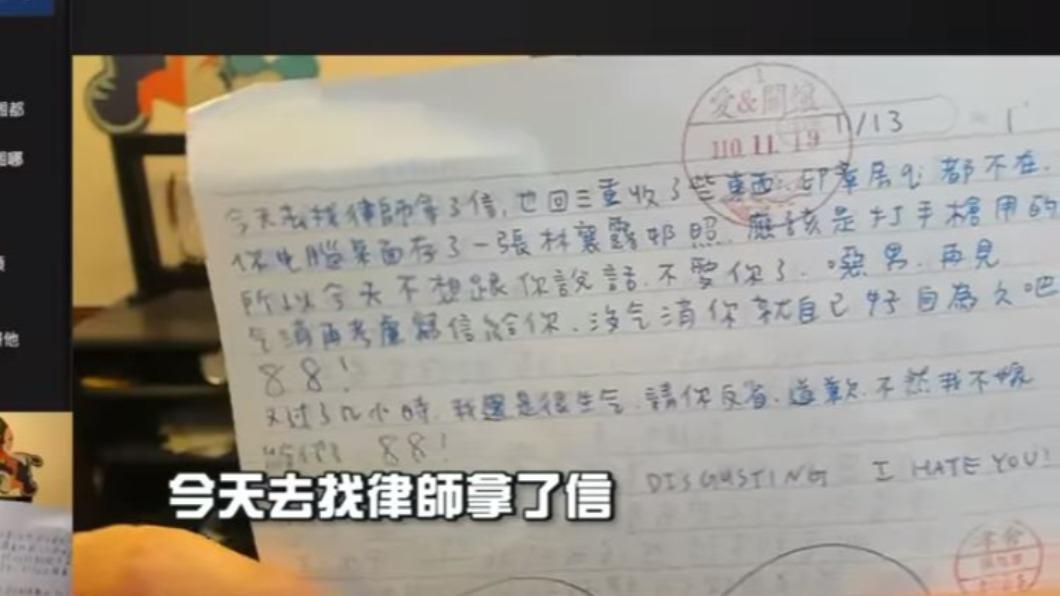 都
哪
他
愛&關懷
110.11.19
11/13
今天去找律師拿了信,也回三重收了些東西.印章居ㄍ都不在.
你电腦桌面存了一張林襄露邲照.應該是打手槍用的
所以今天不想跟你說話.不愛你了.噁男.再見
气消再考慮寫信給你.沒气消你就自己好自為之吧
88!
又过了几小時.我還是很生气.請你反省.道歉.不然我不嫁
給你! 88!
DISGUSTING I HATE YOU!
今天去找律師拿了信